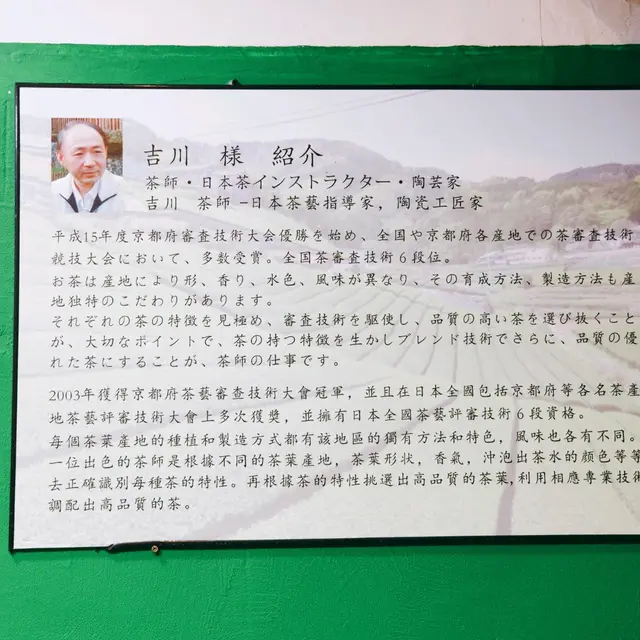 吉川 様 紹介
茶師・日本茶インストラクター・陶芸家
吉川 茶師 –日本茶藝指導家, 陶瓷工匠家
平成15年度京都府審査技術大会優勝を始め、全国や京都府各産地での茶審査技術
競技大会において、多数受賞。全国茶審査技術6段位。
お茶は産地により形、香り、水色、風味が異なり、その育成方法、製造方法も産
地独特のこだわりがあります。
それぞれの茶の特徴を見極め、審査技術を駆使し、品質の高い茶を選び抜くこと
が、大切なポイントで、茶の持つ特徴を生かしブレンド技術でさらに、品質の優
れた茶にすることが、茶師の仕事です。
2003年獲得京都府茶藝審查技術大會冠軍，並且在日本全國包括京都府等各名茶產
地茶藝評審技術大會上多次獲獎，並擁有日本全國茶藝評審技術6段資格。
每個茶葉產地的種植和製造方式都有該地區的獨有方法和特色，風味也各有不同。
一位出色的茶師是根據不同的茶葉產地，茶葉形狀，香氣，沖泡出茶水的顏色等等
去正確識別每種茶的特性。再根據茶的特性挑選出高品質的茶葉,利用相應專業技術
調配出高品質的茶。